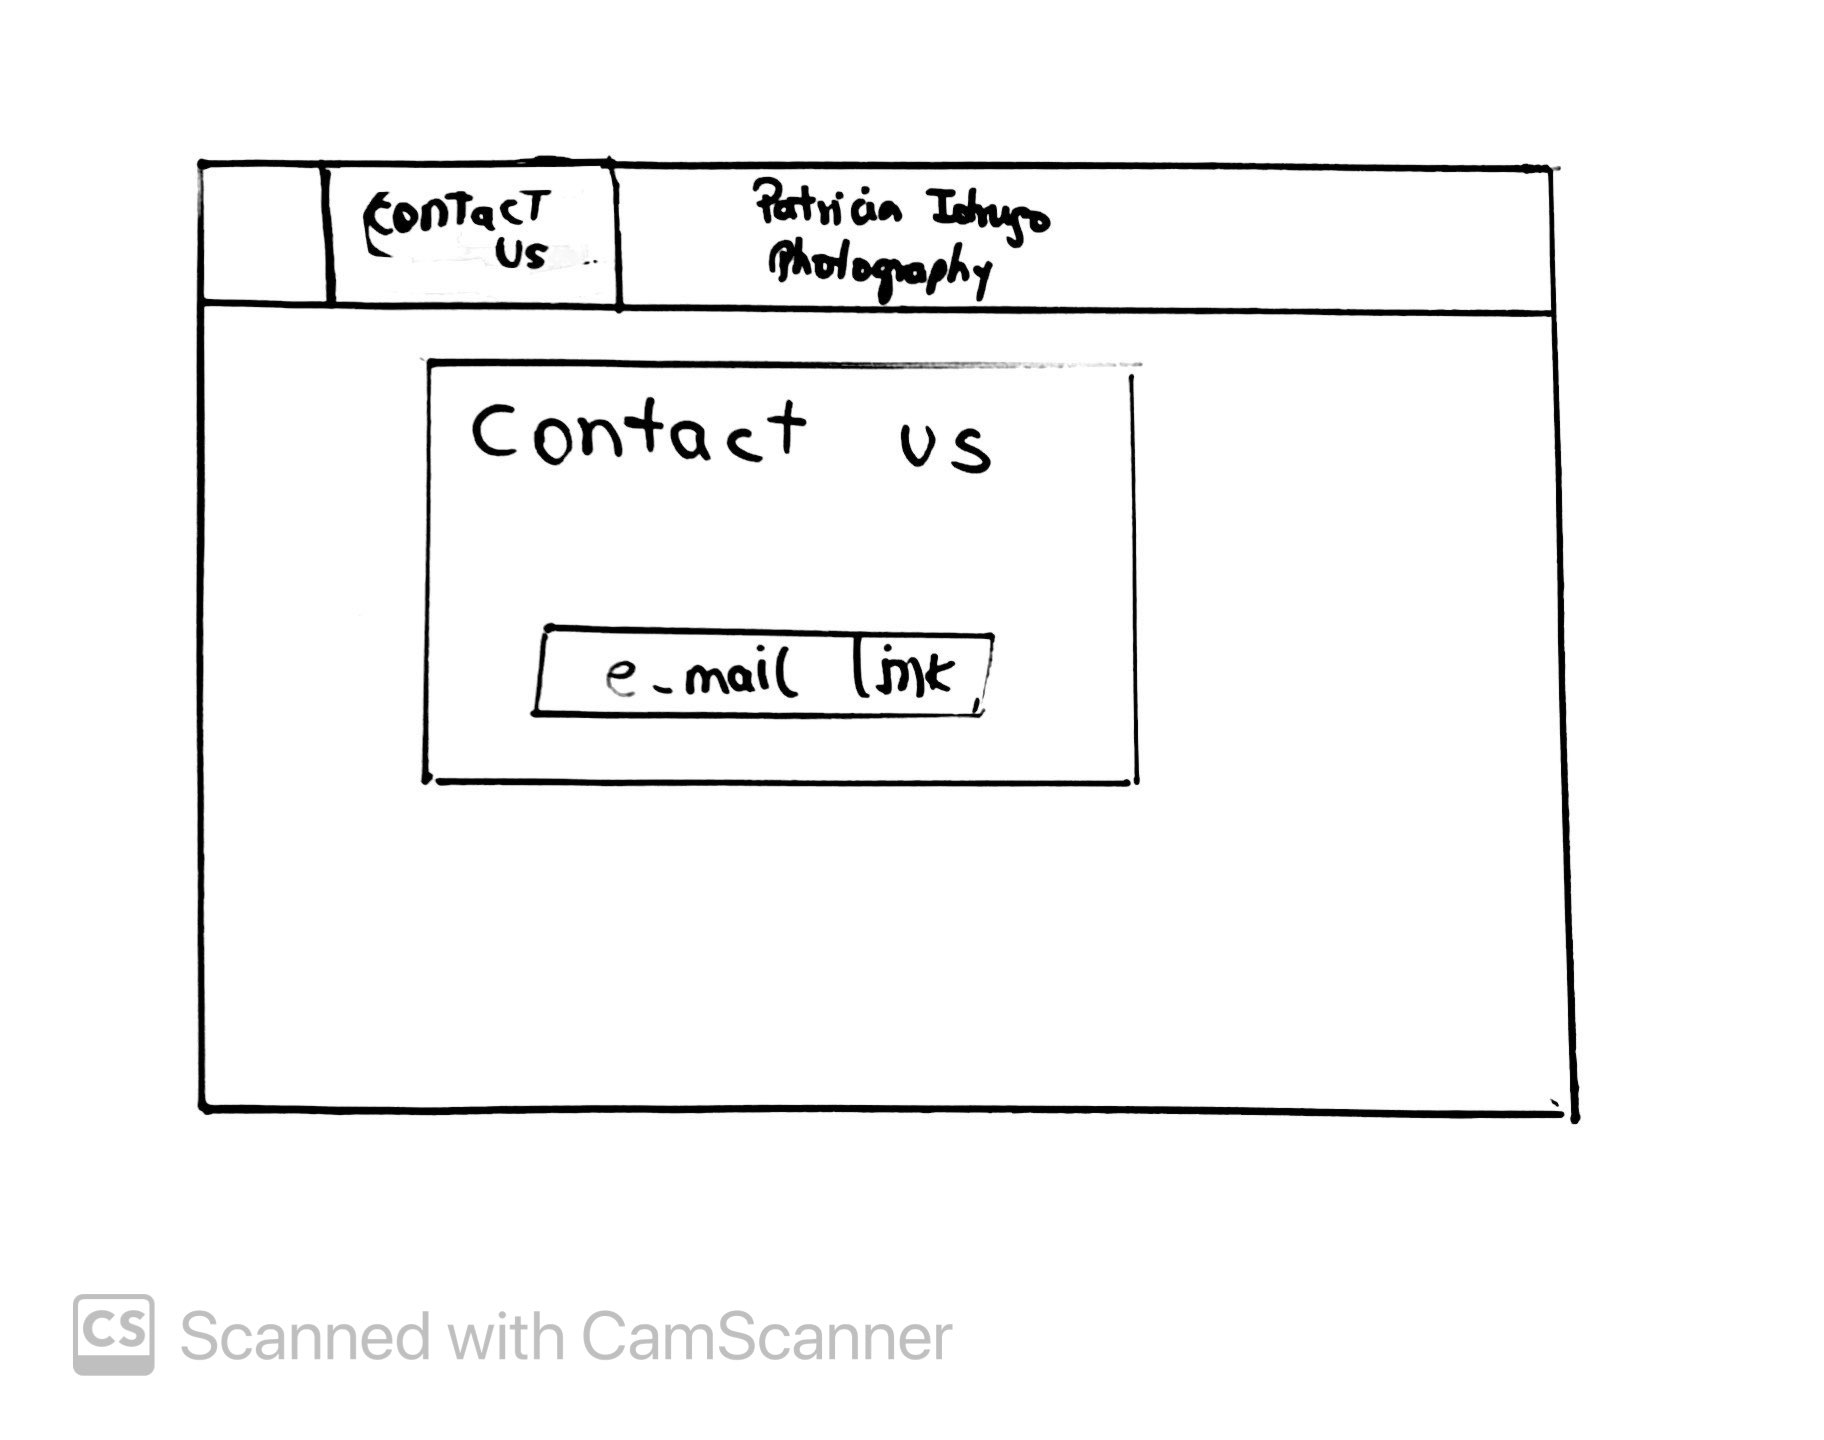 Contact
us
Patricia Idrugo
Photography
Contact us
e-mail link
CS Scanned with CamScanner